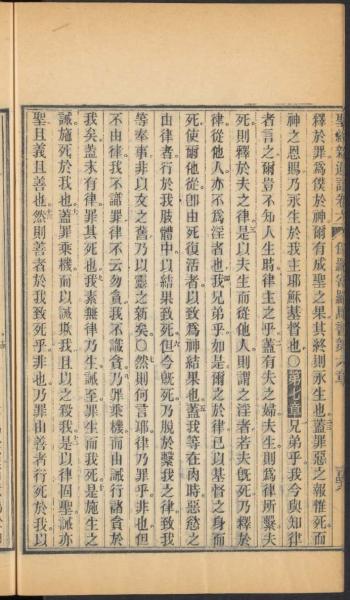 釋於罪爲僕於神爾有成聖之果其終則永生也蓋罪惡之報惟死而
神之恩賜乃永生於我主耶穌基督也〇第七章兄弟乎我今與知律
者言之爾豈不知人生時律主之乎蓋有夫之婦夫生則爲律所繫夫
死則釋於夫之律是以夫生而從他人則謂之淫者若夫旣死乃釋於
律從他人亦不爲淫者也我兄弟乎如是爾之於律已以基督之身而
死使爾他從卽由死復活者以致爲神結果也蓋我等在肉時惡慾之
由律者行於我肢體中以結果致死但今旣死乃脫於繫我之律致我
等奉事非以文之舊乃以靈之新矣〇然則何言耶律乃罪乎非也但
不由律我不識罪律不云勿貪我不識貪乃罪乘機而由誡行諸貪於
我矣蓋未有律罪其死也我素無律乃生誡至罪生而我死是施生之
誡施死於我也蓋罪乘機而以誡欺我且以之殺我是以律固聖誡亦
聖且義且善也然則善者於我致死乎非也乃罪由善者行死於我以